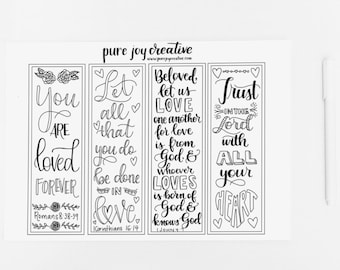 pure joy creative
www.purejoycreative.com
You
ARE
loved
FOREVER
Romans 8:38-39
Let
all
that
you do
be done
IN
love
1 Corinthians 16:14
Beloved,
let us
LOVE
one another
for love
is from
God, &
whoever
LOVES
is born of
God &
knows God
1 John 4:7
Trust
in the
Lord
with
ALL
your
HEART